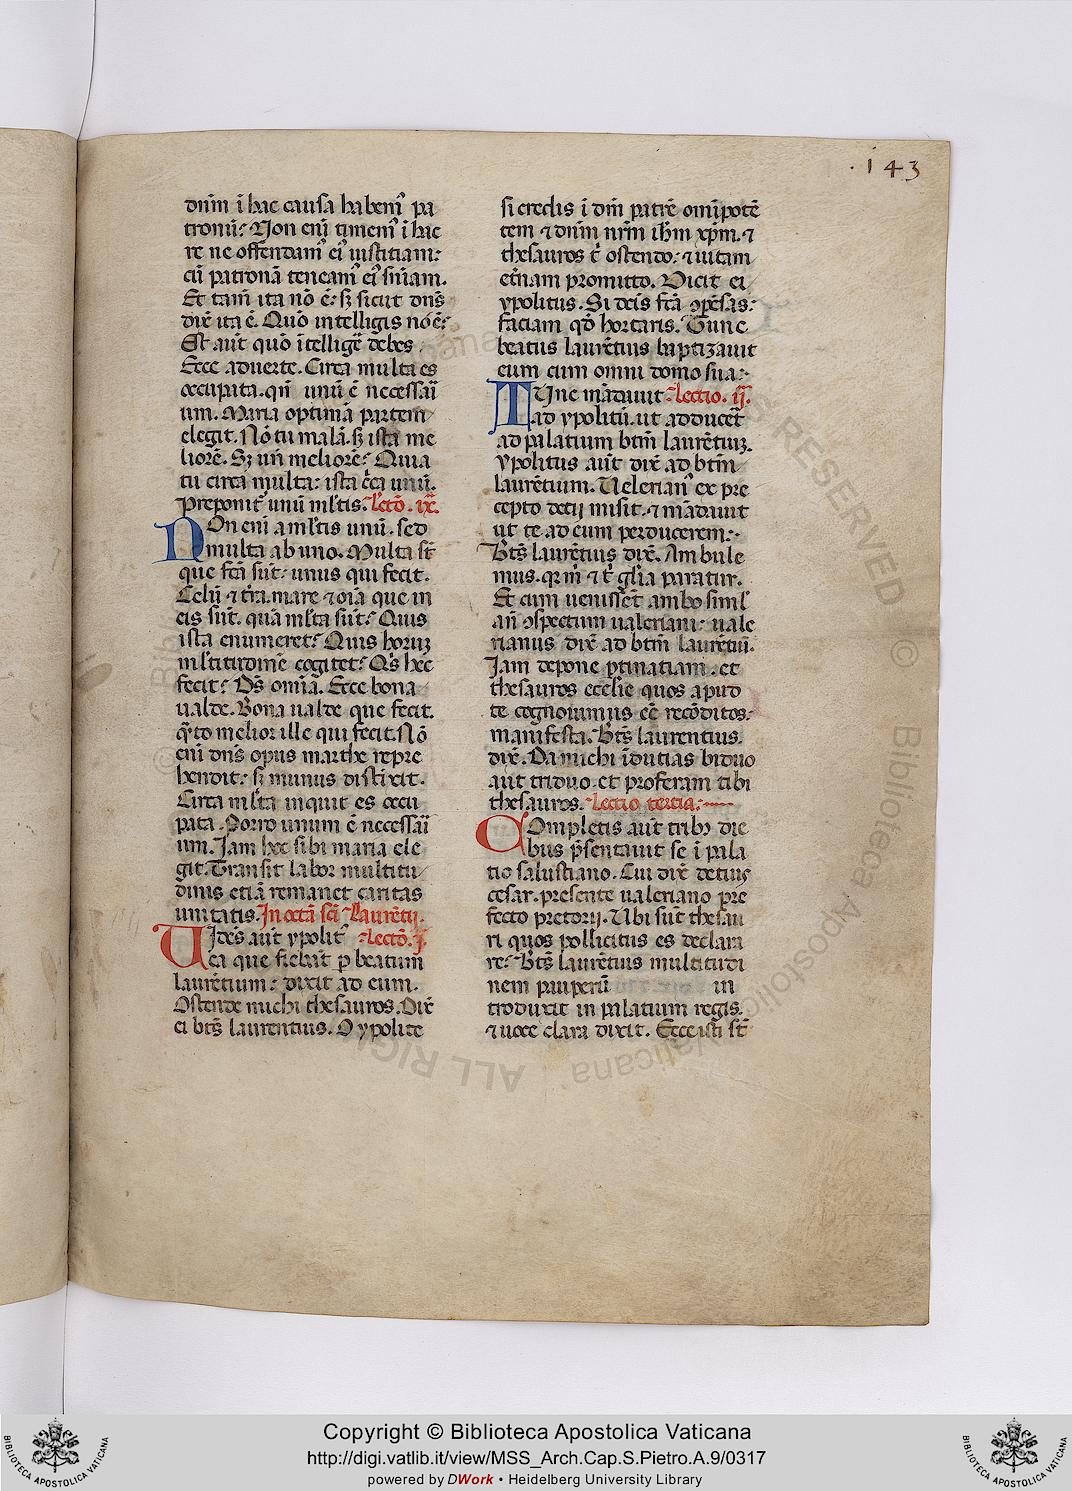 .143
dn̄m ī hac causa habem᷒ pa
tronū? Non enī timem᷒ ī hac
re ne offendam᷒ ei᷒ iustitiam:
cū patronā teneam᷒ ei᷒ sn̄iam.
Et tam̄ ita nō ē: sꝫ sicut dn̄s
dix̄ ita ē. Quō intelligis nō ē?
Est aut̄ quo ītellige᷒ debes.
Ecce aduerte. Circa multa es
occupata. qn̄ unū ē necessaī
um. Maria optimā partem
elegit. Nō tu malā. sꝫ ista me
liorē. Sꝫ un̄ meliorē? Quia
tu circa multa: ista c̄ca unū.
Preponit᷒ unū ml̄tis. Lectō. ix.
Non enī a ml̄tis unū. sed
multa ab uno. Multa st̄
que fc̄a sūt: unus qui fecit.
Celū ⁊ t̄ra. mare ⁊ oīa que in
eis sūt. quā ml̄ta sūt? Quis
ista enumeret? Quis horuꝫ
ml̄titudinē cogitet? Qͥs hec
fecit? Ds̄ omīa. Ecce bona
ualde. Bona ualde que fecit.
qͣ̄to melior ille qui fecit. Nō
enī dn̄s opus marthe repre
hendit: sꝫ munus distīxit.
Circa ml̄ta inquit es occu
pata. Porro unum ē necessaī
um. Iam hec sibi maria ele
git. Transit labor multitu
dinis etiā remanet caritas
unitatis. In octā sc̄i Laurētij.
Uidēs aut̄ ypolit᷒ Lectō. j.
ea que fiebāt ꝑ beatum
laurētium: dixit ad eum.
Ostende michi thesauros. Dix̄
ei bt̄s laurentius. O ypolite
si credis ī dm̄ patrē omīpotē
tem ⁊ dn̄m nr̄m ih̄m xp̄m. ⁊
thesauros t̄ ostendo: ⁊ uitam
et̄nam promitto. Dicit ei
ypolitus. Si dc̄is fc̄a ꝯpēsas:
faciam qd̄ hortaris. Tunc
beatus laurētius baptizauit
eum cum omni domo sua:
Tunc mādauit Lectio. ij.
ad ypolitū. ut adducēt
ad palatium bt̄m laurētiuꝫ.
Ypolitus aut̄ dix̄ ad bt̄m
laurētium. Ualerian᷒ ex pre
cepto decij misit. ⁊ mādauit
ut te ad eum perducerem:
Bt̄s laurētius dix̄. Ambule
mus. qꝛ m̄ ⁊ t̄ gl̄ia paratur.
Et cum uenissēt ambo siml̄
an̄ ꝯspectum ualeriani: uale
rianus dix̄ ad bt̄m laurētiū.
Iam depone ꝑtinatiam. et
thesauros ecclesie quos apud
te cognouimus eē recōditos:
manifesta. Bt̄s laurentius.
dix̄. Da michi īdutias biduo
aut triduo. et proferam tibi
thesauros. Lectio tertia:
Completis aut̄ tribꝫ die
bus p̄sentauit se ī pala
tio salustiano. Cui dix̄ detius
cesar. presente ualeriano pre
fecto pretorij. Ubi sūt thesau
ri quos pollicitus es declara
re? Bt̄s laurētius multitudi
nem pauperū in
troduxit in palatium regis.
⁊ uoce clara dixit. Ecce isti st̄
Copyright © Biblioteca Apostolica Vaticana
http://digi.vatlib.it/view/MSS_Arch.Cap.S.Pietro.A.9/0317
powered by DWork • Heidelberg University Library
BIBLIOTECA APOSTOLICA VATICANA
BIBLIOTECA APOSTOLICA VATICANA